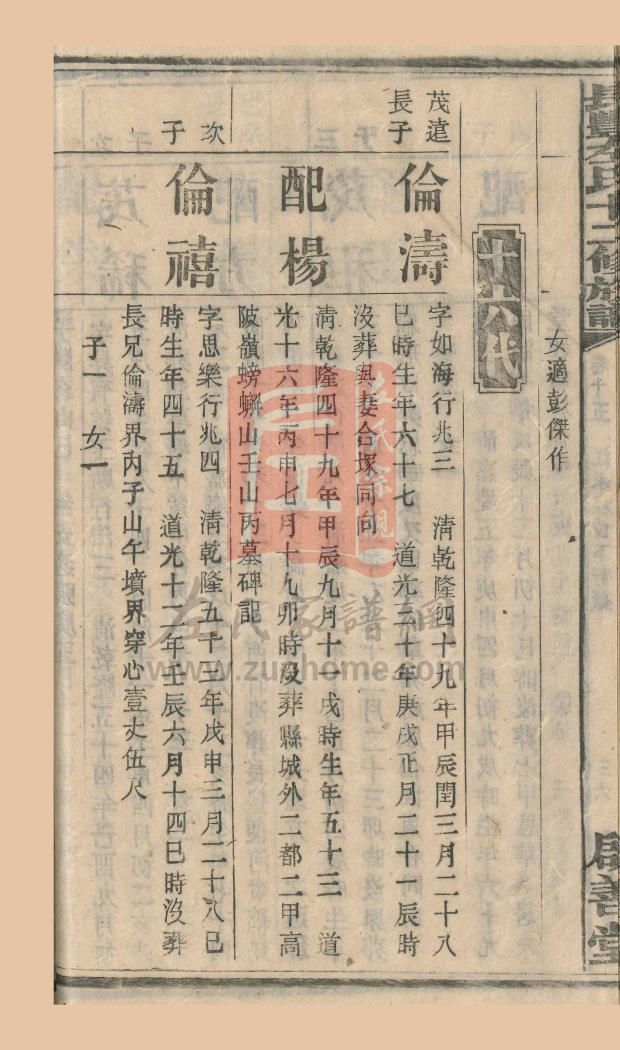 女適彭傑作
十八代
茂遠長子
倫濤
字如海行兆三 清乾隆四十九年甲辰閏三月二十八
巳時生年六十七 道光三十年庚戌正月二十一辰時
沒葬與妻合塚同向
配楊
清乾隆四十九年甲辰九月十一戌時生年五十三 道
光十六年丙申七月十九卯時沒葬縣城外二都二甲高
陂嶺螃蠏山壬山丙墓碑記
次子
倫禧
字思樂行兆四 清乾隆五十三年戊申三月二十八巳
時生年四十五 道光十二年壬辰六月十四巳時沒葬
長兄倫濤界內子山午墳界穿心壹丈伍尺
子一 女一
啟善堂
左氏家譜網
www.zuqhome.com